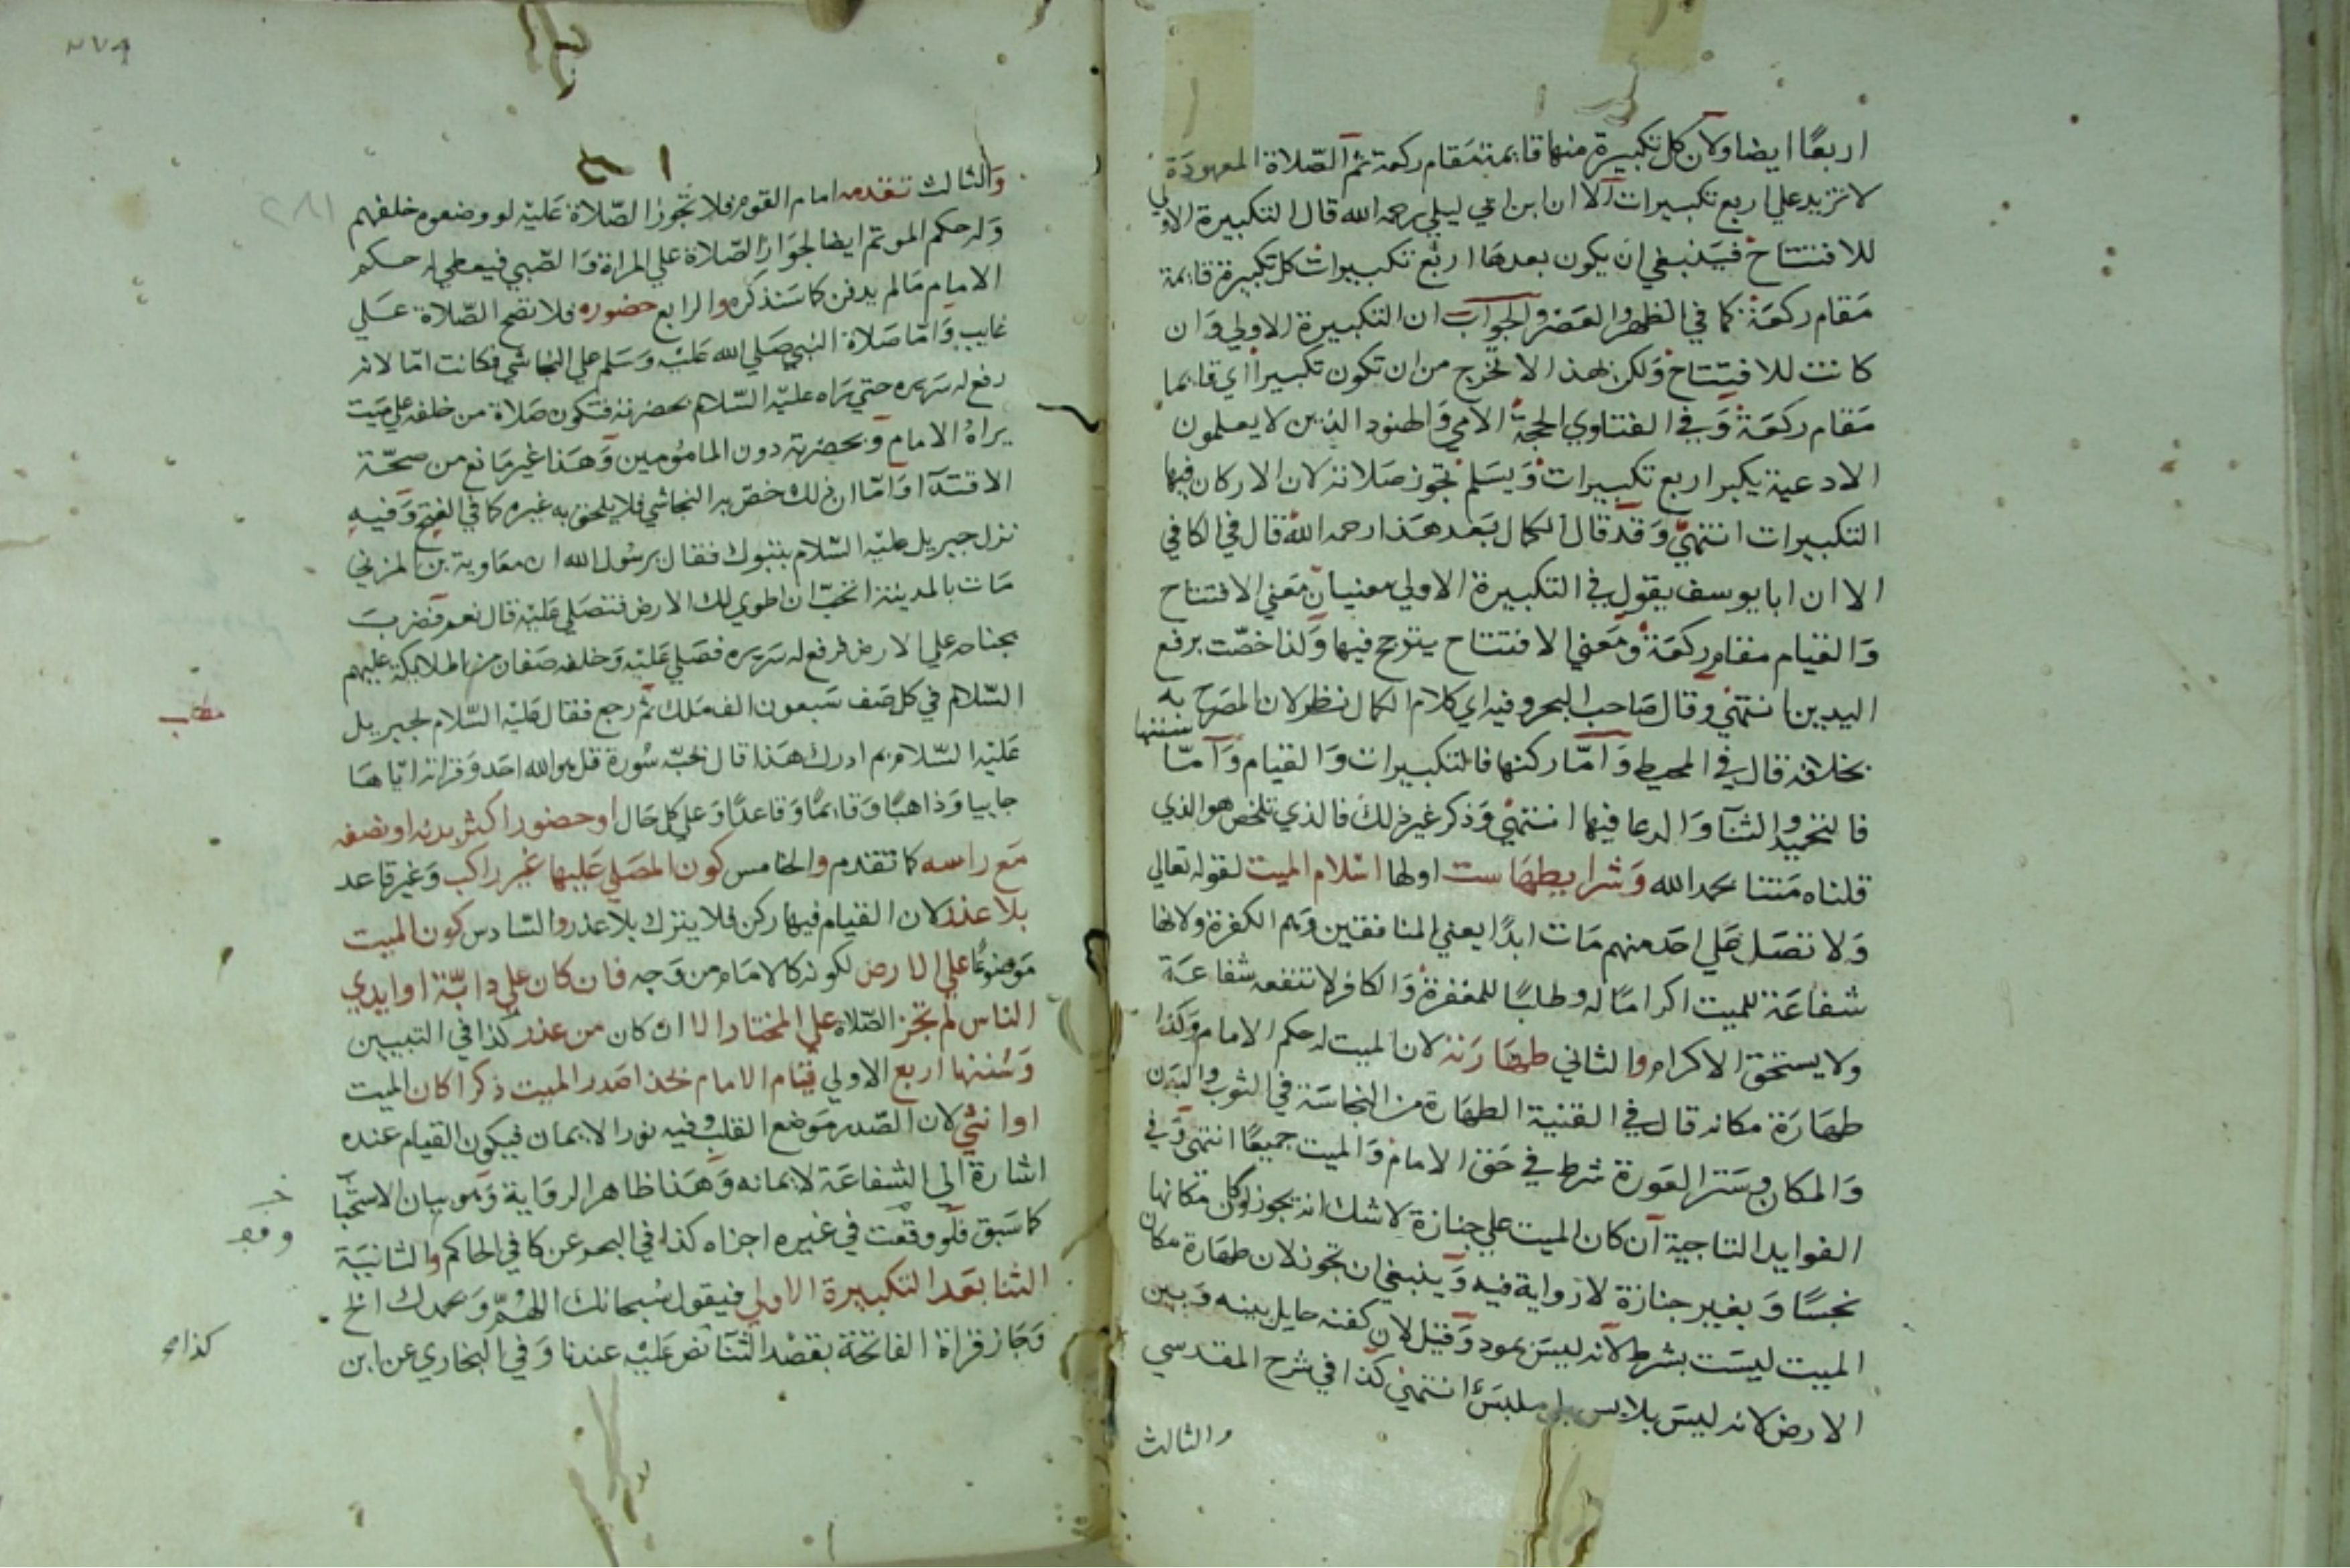 اربعا ايضا ولان كل تكبيرة منها قايمة مقام ركعة ثم الصلاة المعهودة
لا تزيد علي اربع تكبيرات الا ان ابن ابي ليلي رحمه الله قال التكبيرة الاولي
للافتتاح فينبغي ان يكون بعدها اربع تكبيرات كل تكبيرة قايمة
مقام ركعة كما في الظهر والعصر والجواب ان التكبيرة الاولي وان
كانت للافتتاح ولكن بهذا لا تخرج من ان تكون تكبيرا اي قايما
مقام ركعة وفي الفتاوي الحجة الامي والهنود الذين لا يعلمون
الادعية يكبر اربع تكبيرات ويسلم تجوز صلاته لان الاركان فيها
التكبيرات انتهي وقد قال الكمال بعد هذا رحمه الله قال في الكافي
الا ان ابا يوسف يقول في التكبيرة الاولي معنيان معني الافتتاح
والقيام مقام ركعة ومعني الافتتاح يترجح فيها ولذا خصت برفع
اليدين انتهي وقال صاحب البحر وفيه اي كلام الكمال نظر لان المصرح به
بخلافه قال في المحيط واما ركنها فالتكبيرات والقيام واما سننها
فالتحميد والثنآ والدعا فيها انتهي وذكر غير ذلك فالذي تلخص هو الذي
قلناه متنا بحمد الله وشرايطها ست اولها اسلام الميت لقوله تعالي
ولا تصل علي احد منهم مات ابدا يعني المنافقين وهم الكفرة ولانها
شفاعة للميت اكراما له وطلبا للمغفرة والكافر لا تنفعه شفاعة
ولا يستحق الاكرام والثاني طهارته لان الميت له حكم الامام وكذا
طهارة مكانه قال في القنية الطهارة من النجاسة في الثوب والبدن
والمكان وستر العورة شرط في حق الامام والميت جميعا انتهي وفي
الفوايد التاجية ان كان الميت علي جنازة لا شك انه يجوز لو كان مكانها
نجسا وبغير جنازة لا رواية فيه وينبغي ان تجوز لان طهارة مكان
الميت ليست بشرط لانه ليس بمود وقيل لان كفنه حايل بينه وبين
الارض لانه ليس بلابس بل ملبس انتهي كذا في شرح المقدسي
والثالث
والثالث تقدمه امام القوم فلا تجوز الصلاة عليه لو وضعوه خلفهم
وله حكم الموتم ايضا لجواز الصلاة علي المراة والصبي فيعطي له حكم
الامام ما لم يدفن كما سنذكره والرابع حضوره فلا تصح الصلاة علي
غايب واما صلاة النبي صلي الله عليه وسلم علي النجاشي فكانت اما لانه
رفع له سريره حتي يراه عليه السلام بحضرته فتكون صلاة من خلفه علي ميت
يراه الامام وبحضرته دون المامومين وهذا غير مانع من صحة
الاقتدآ واما ان ذلك خص به النجاشي فلا يلحق به غيره كما في الفتح وفيه
نزل جبريل عليه السلام بتبوك فقال يرسول الله ان معاوية بن المزني
مات بالمدينة اتحب ان اطوي لك الارض فتصلي عليه قال نعم فضرب
بجناحه علي الارض فرفع له سريره فصلي عليه وخلفه صفان من الملايكة عليهم
السلام في كل صف سبعون الف ملك ثم رجع فقال عليه السلام لجبريل
عليه السلام بم ادرك هذا قال بحبه سورة قل هو الله احد وقراته اياها
جاييا وذاهبا وقايما وقاعدا وعلي كل حال او حضور اكثر بدنه او نصفه
مع راسه كما تقدم والخامس كون المصلي عليها غير راكب وغير قاعد
بلا عذر لان القيام فيها ركن فلا يترك بلا عذر والسادس كون الميت
موضوعا علي الارض لكونه كالامام من وجه فان كان علي دابة او ايدي
الناس لم تجز الصلاة علي المختار الا ان كان من عذر كذا في التبيين
وسننها اربع الاولي قيام الامام بحذا صدر الميت ذكرا كان الميت
او انثي لان الصدر موضع القلب وفيه نور الايمان فيكون القيام عنده
اشارة الي الشفاعة لايمانه وهذا ظاهر الرواية وهو بيان الاستحبا
كما سبق فلو وقعت في غيره اجزاه كذا في البحر عن كافي الحاكم والثانية
الثنا بعد التكبيرة الاولي فيقول سبحانك اللهم وبحمدك الخ
وجاز قراة الفاتحة بقصد الثنآ نص عليه عندنا وفي البخاري عن ابن
مطلب